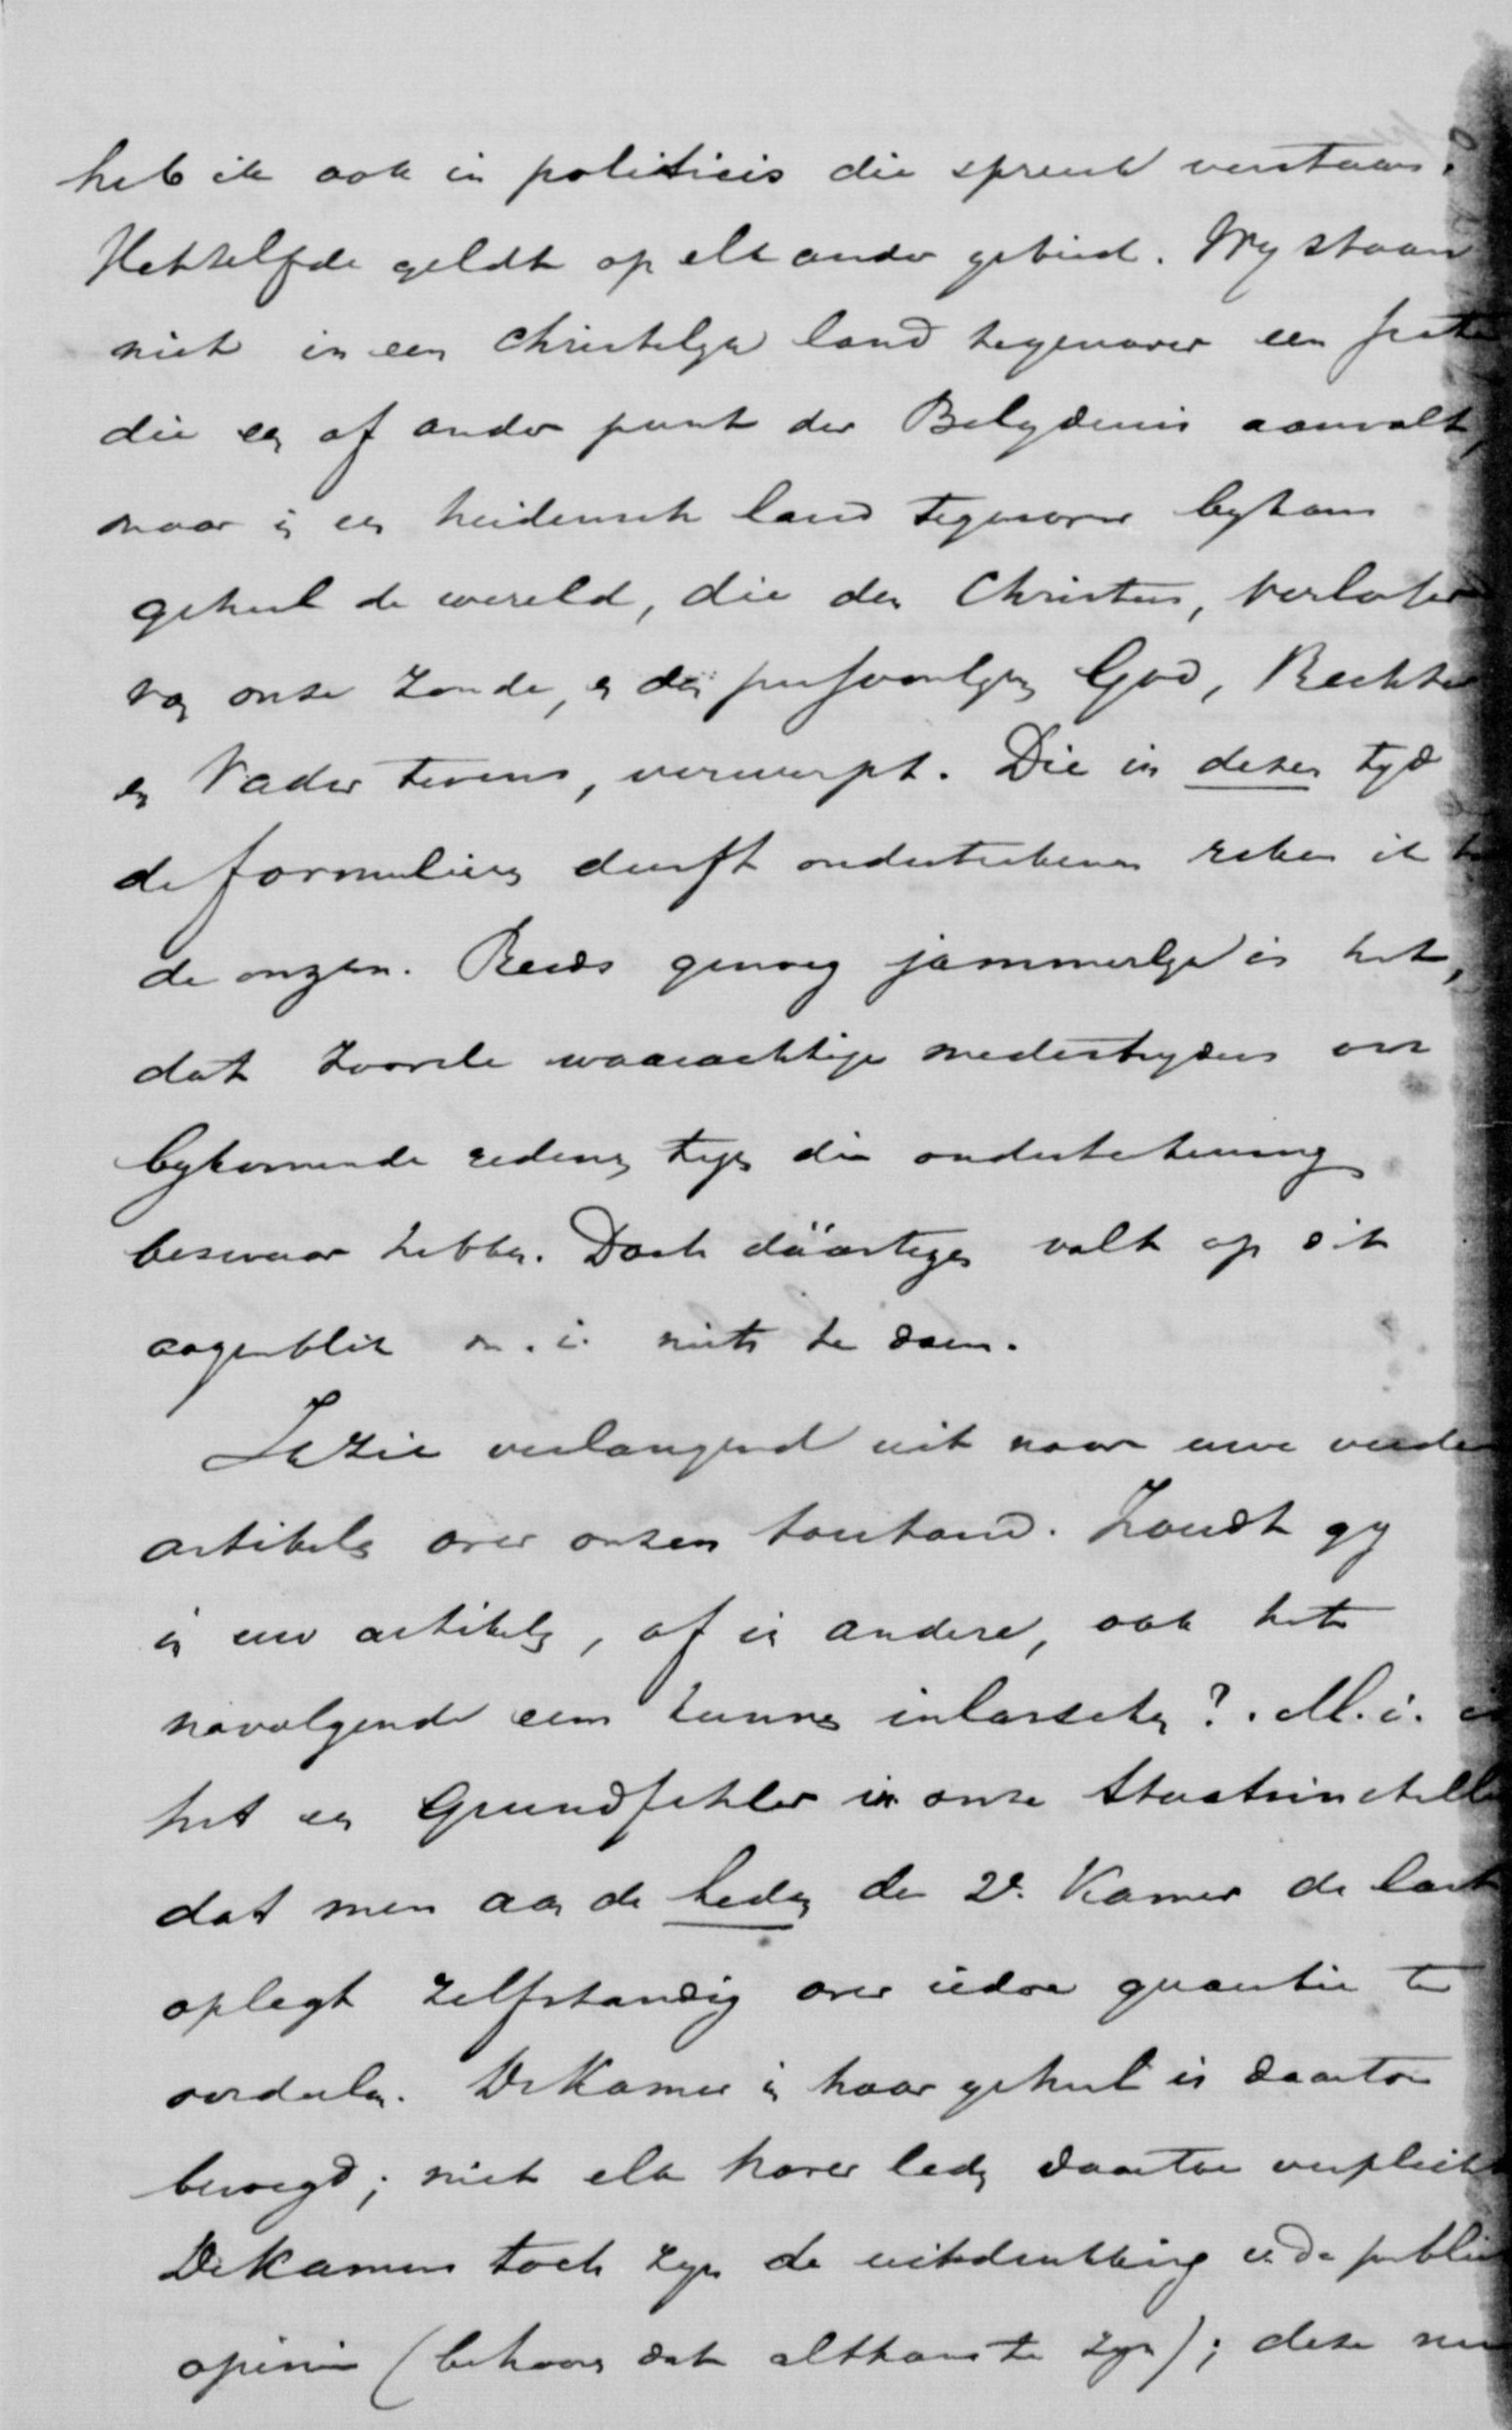 heb ik ook in politicis die spreuk verstaan.
Hetzelfde geldt op elk ander gebied. Wy staan
niet in een Christelyk land tegenover een
die een of ander punt der Belydenis aanvalt,
maar in een heidensch land tegenover bykans
geheel de wereld, die den Christus, Verlosser
van onze zonde, en den persoonlyken God, Rechter
en Vader tevens, verwerpt. Die in dezen tyd
de formulieren durft onderteekenen reken ik
de onzen. Reeds genoeg jammerlyk is het,
dat zoovele waarachtige medestryders om
bykomende redenen tegen die onderteekening
bezwaar hebben. Doch dáártegen valt op dit
oogenblik m. i. niets te doen.
Ik zie verlangend uit naar uwe verdere
artikels over onzen toestand. Zoudt gy
in uw artikels, of in andere, ook het
navolgende eens kunnen inlasschen? . M. i. is
het een Grundfehler in onze Staatsinstelle
dat men aan de leden der 2e. Kamer de last
oplegt zelfstandig over iedere quaestie te
oordeelen. De Kamer in haar geheel is daartoe
bevoegd; niet elk harer leden daartoe verplicht
De Kamers toch zyn de uitdrukking v. de publieke
opinie (behooren dat althans te zyn); deze nu